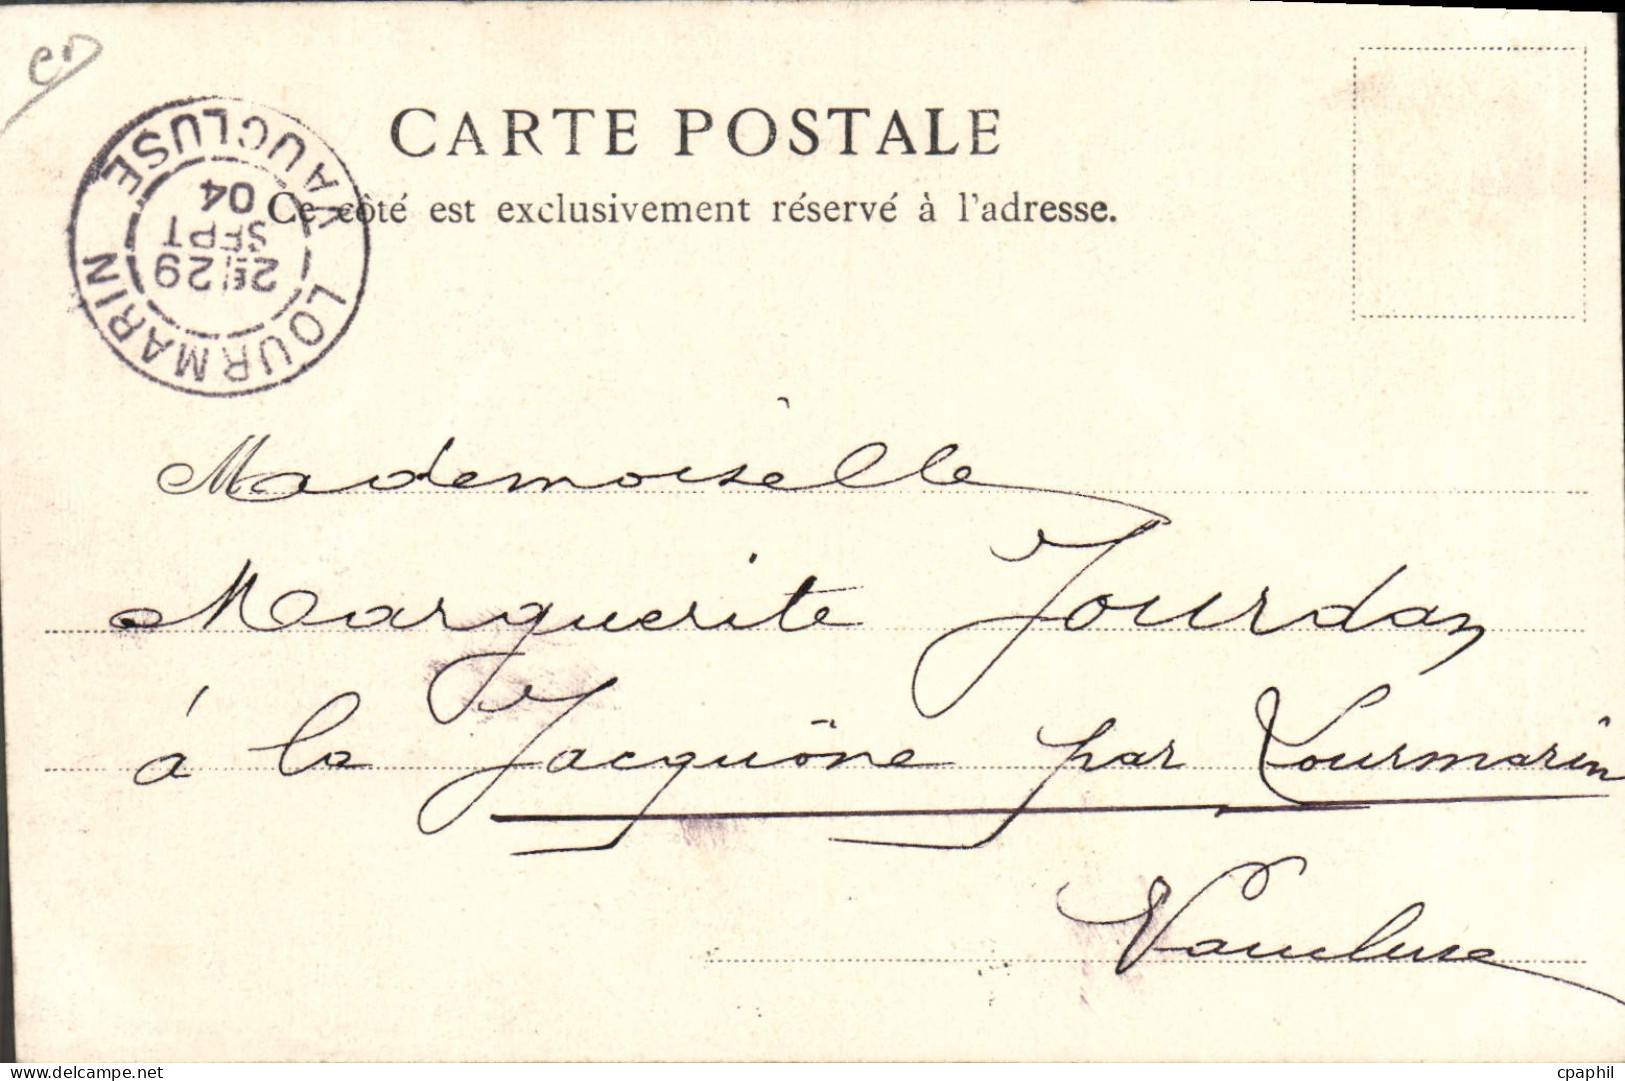 CARTE POSTALE
Ce côté est exclusivement réservé à l'adresse.
LOURMARIN
VAUCLUSE
2E 29
SEPT
04
Mademoiselle
Marguerite Jourdan
à la Jacquône par Lourmarin
Vaucluse
delcampe.net
cpaphil